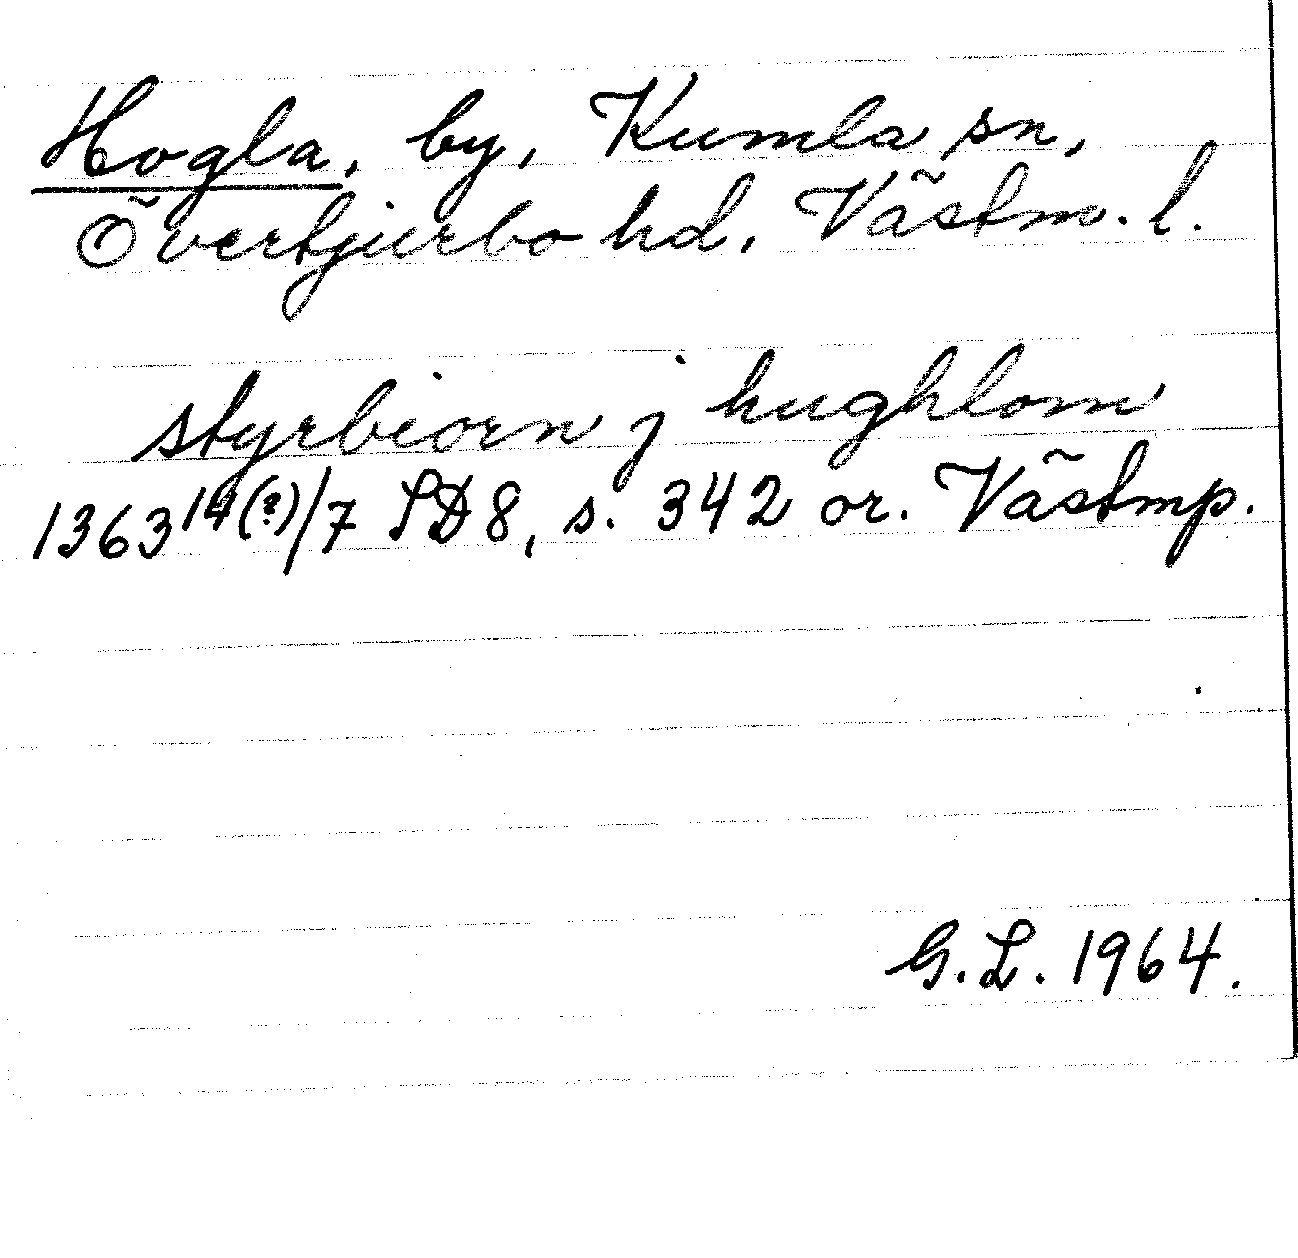 Hogla, by, Kumla sn,
Övertjurbo hd, Västm. l.
styrbiorn j hughlom
1363 14(?)/7 SD 8, s. 342 or. Västmp.
G.L. 1964.